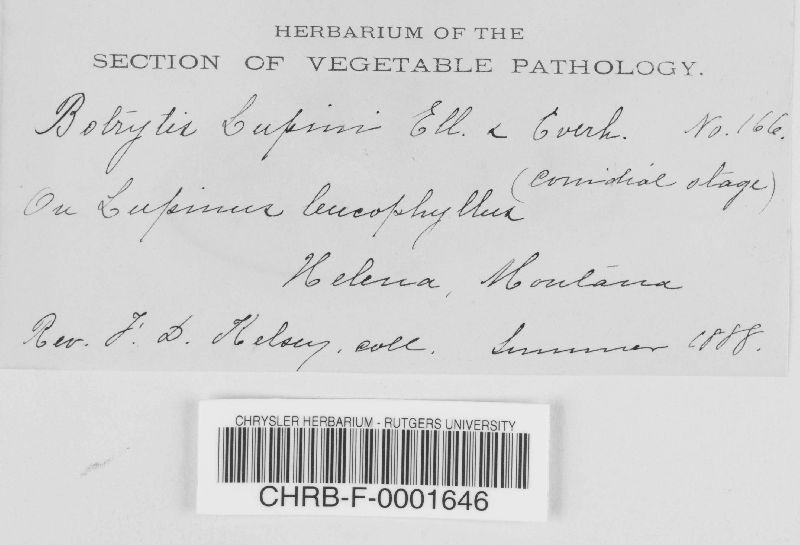 HERBARIUM OF THE
SECTION OF VEGETABLE PATHOLOGY.
Botrytis Lupini Ell. & Everh. No. 166.
(conidial stage)
On Lupinus leucophyllus
Helena, Montana
Rev. F. D. Kelsey, coll. Summer 1888.
CHRYSLER HERBARIUM - RUTGERS UNIVERSITY
CHRB-F-0001646